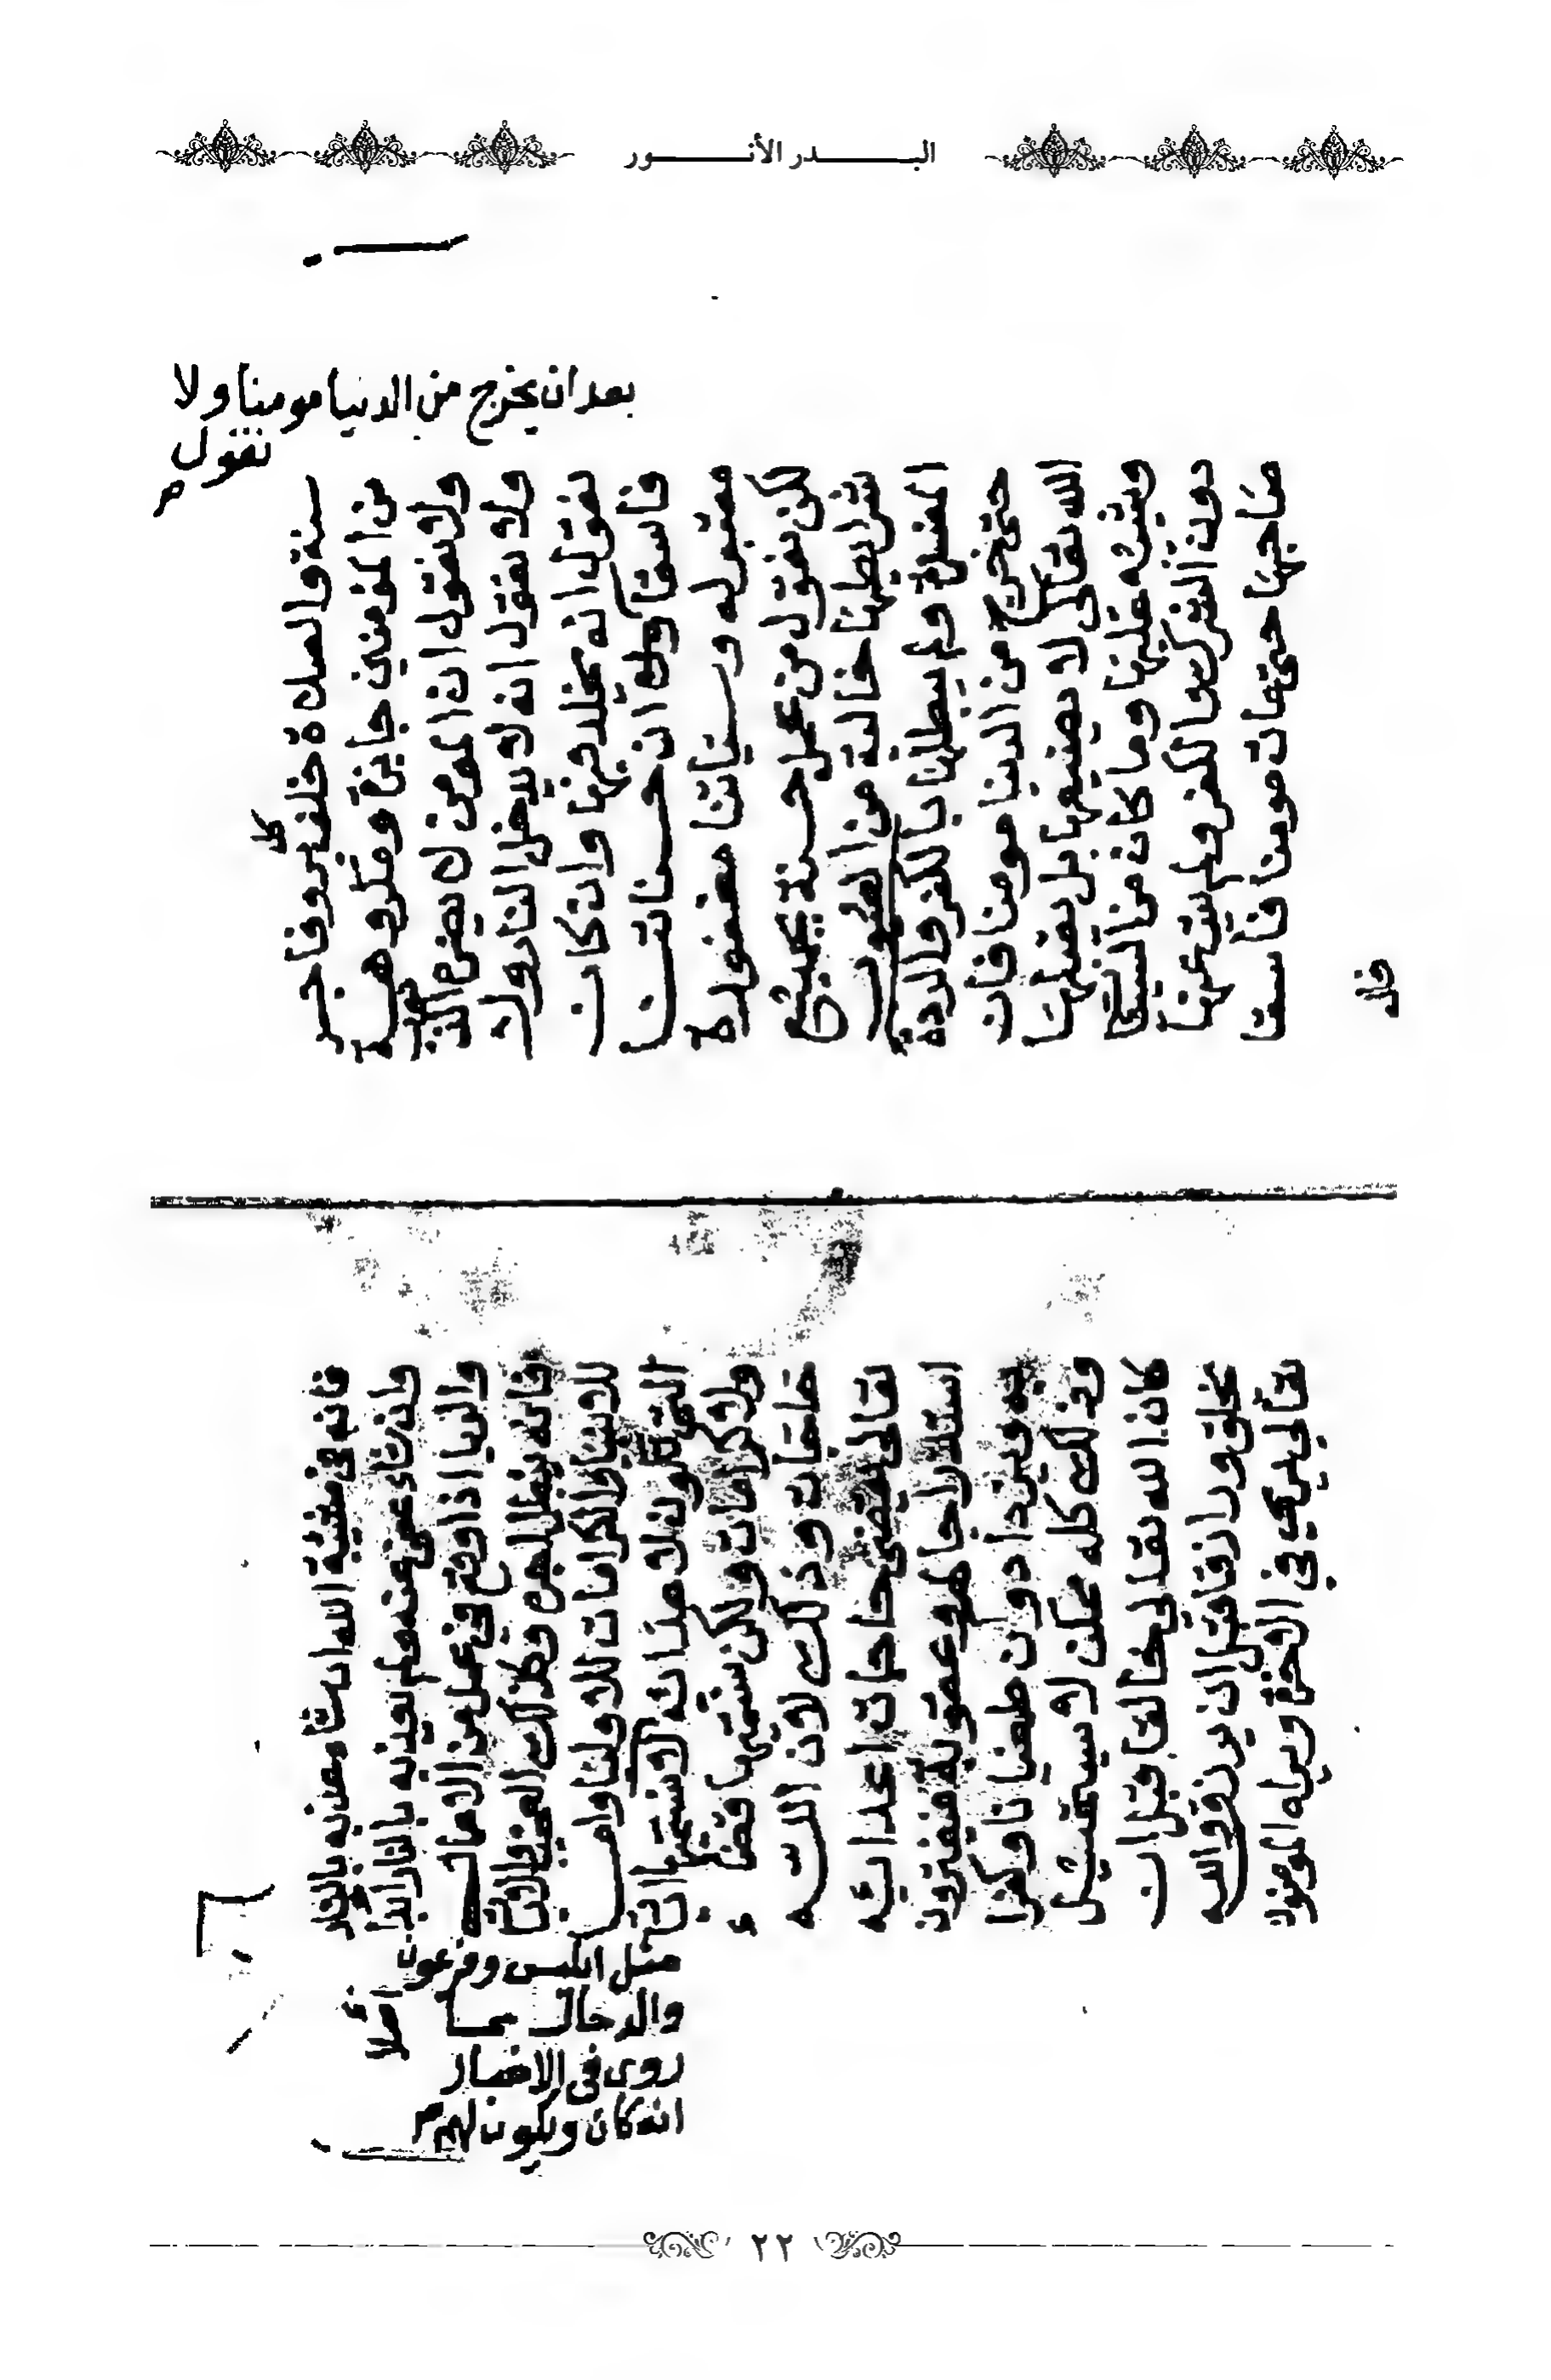 البـــدر الأنــور
بعد ان يخرج من الدنيا مومنا ولا
نقول
سنة والصلاة خلف كل بر وفاجر
من المؤمنين جايزة ومكروهة
ولا نقول ان المومن لا يضره الذنوب
ولا نقول انه لا يدخل النار ولا
نقول انه يخلد فيها وان كان
فاسقا ولا ان حسناتنا
مقبوله وسياتنا مغفورة
لكن نقول من عمل حسنة بجميع
شرايطها خالية من العيوب
المفسدة ولم يبطلها بالكفر والردة
حتى خرج من الدنيا مومنا فان
الله تعالى لا يضيعها بل يقبلها
ويثيبه عليها وما كان من السيئات
دون الشرك والكفر ولم يتب عنها
صاحبها حتى مات مومنا فاسقا
فانه
فانه في مشية الله ان شا عذبه بالنار
وان شاء عفى عنه ولم يعذبه بالنار ابدا اصلا
والريا اذا وقع في عمل من الاعمال
فانه يبطل اجره وكذلك العجب والايات
للانبيا والكرامات للاوليا واما
التي تكون لاعدائه لا نسميها ايات
ولا كرامات ولكن نسميها قضاء
حاجات وذلك لان الله
تعالى يقضي حاجات اعدائه
استدراجا لهم وعقوبة فيغترون
به ويزدادون طغيانا وكفرا
وذلك كله ممكن لا يستحيل
كان الله تعالى خالقا قبل ان
يخلق ورازقا قبل ان يرزق والله
تعالى يرى في الاخرة ويراه المومنون
مثل ابليس وفرعون
والدجال مما
روى في الاخبار
انه كان ويكون لهم
٢٢